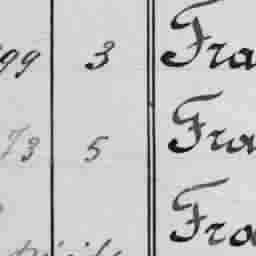 99 3 Fra
73 5 Fra
Fra